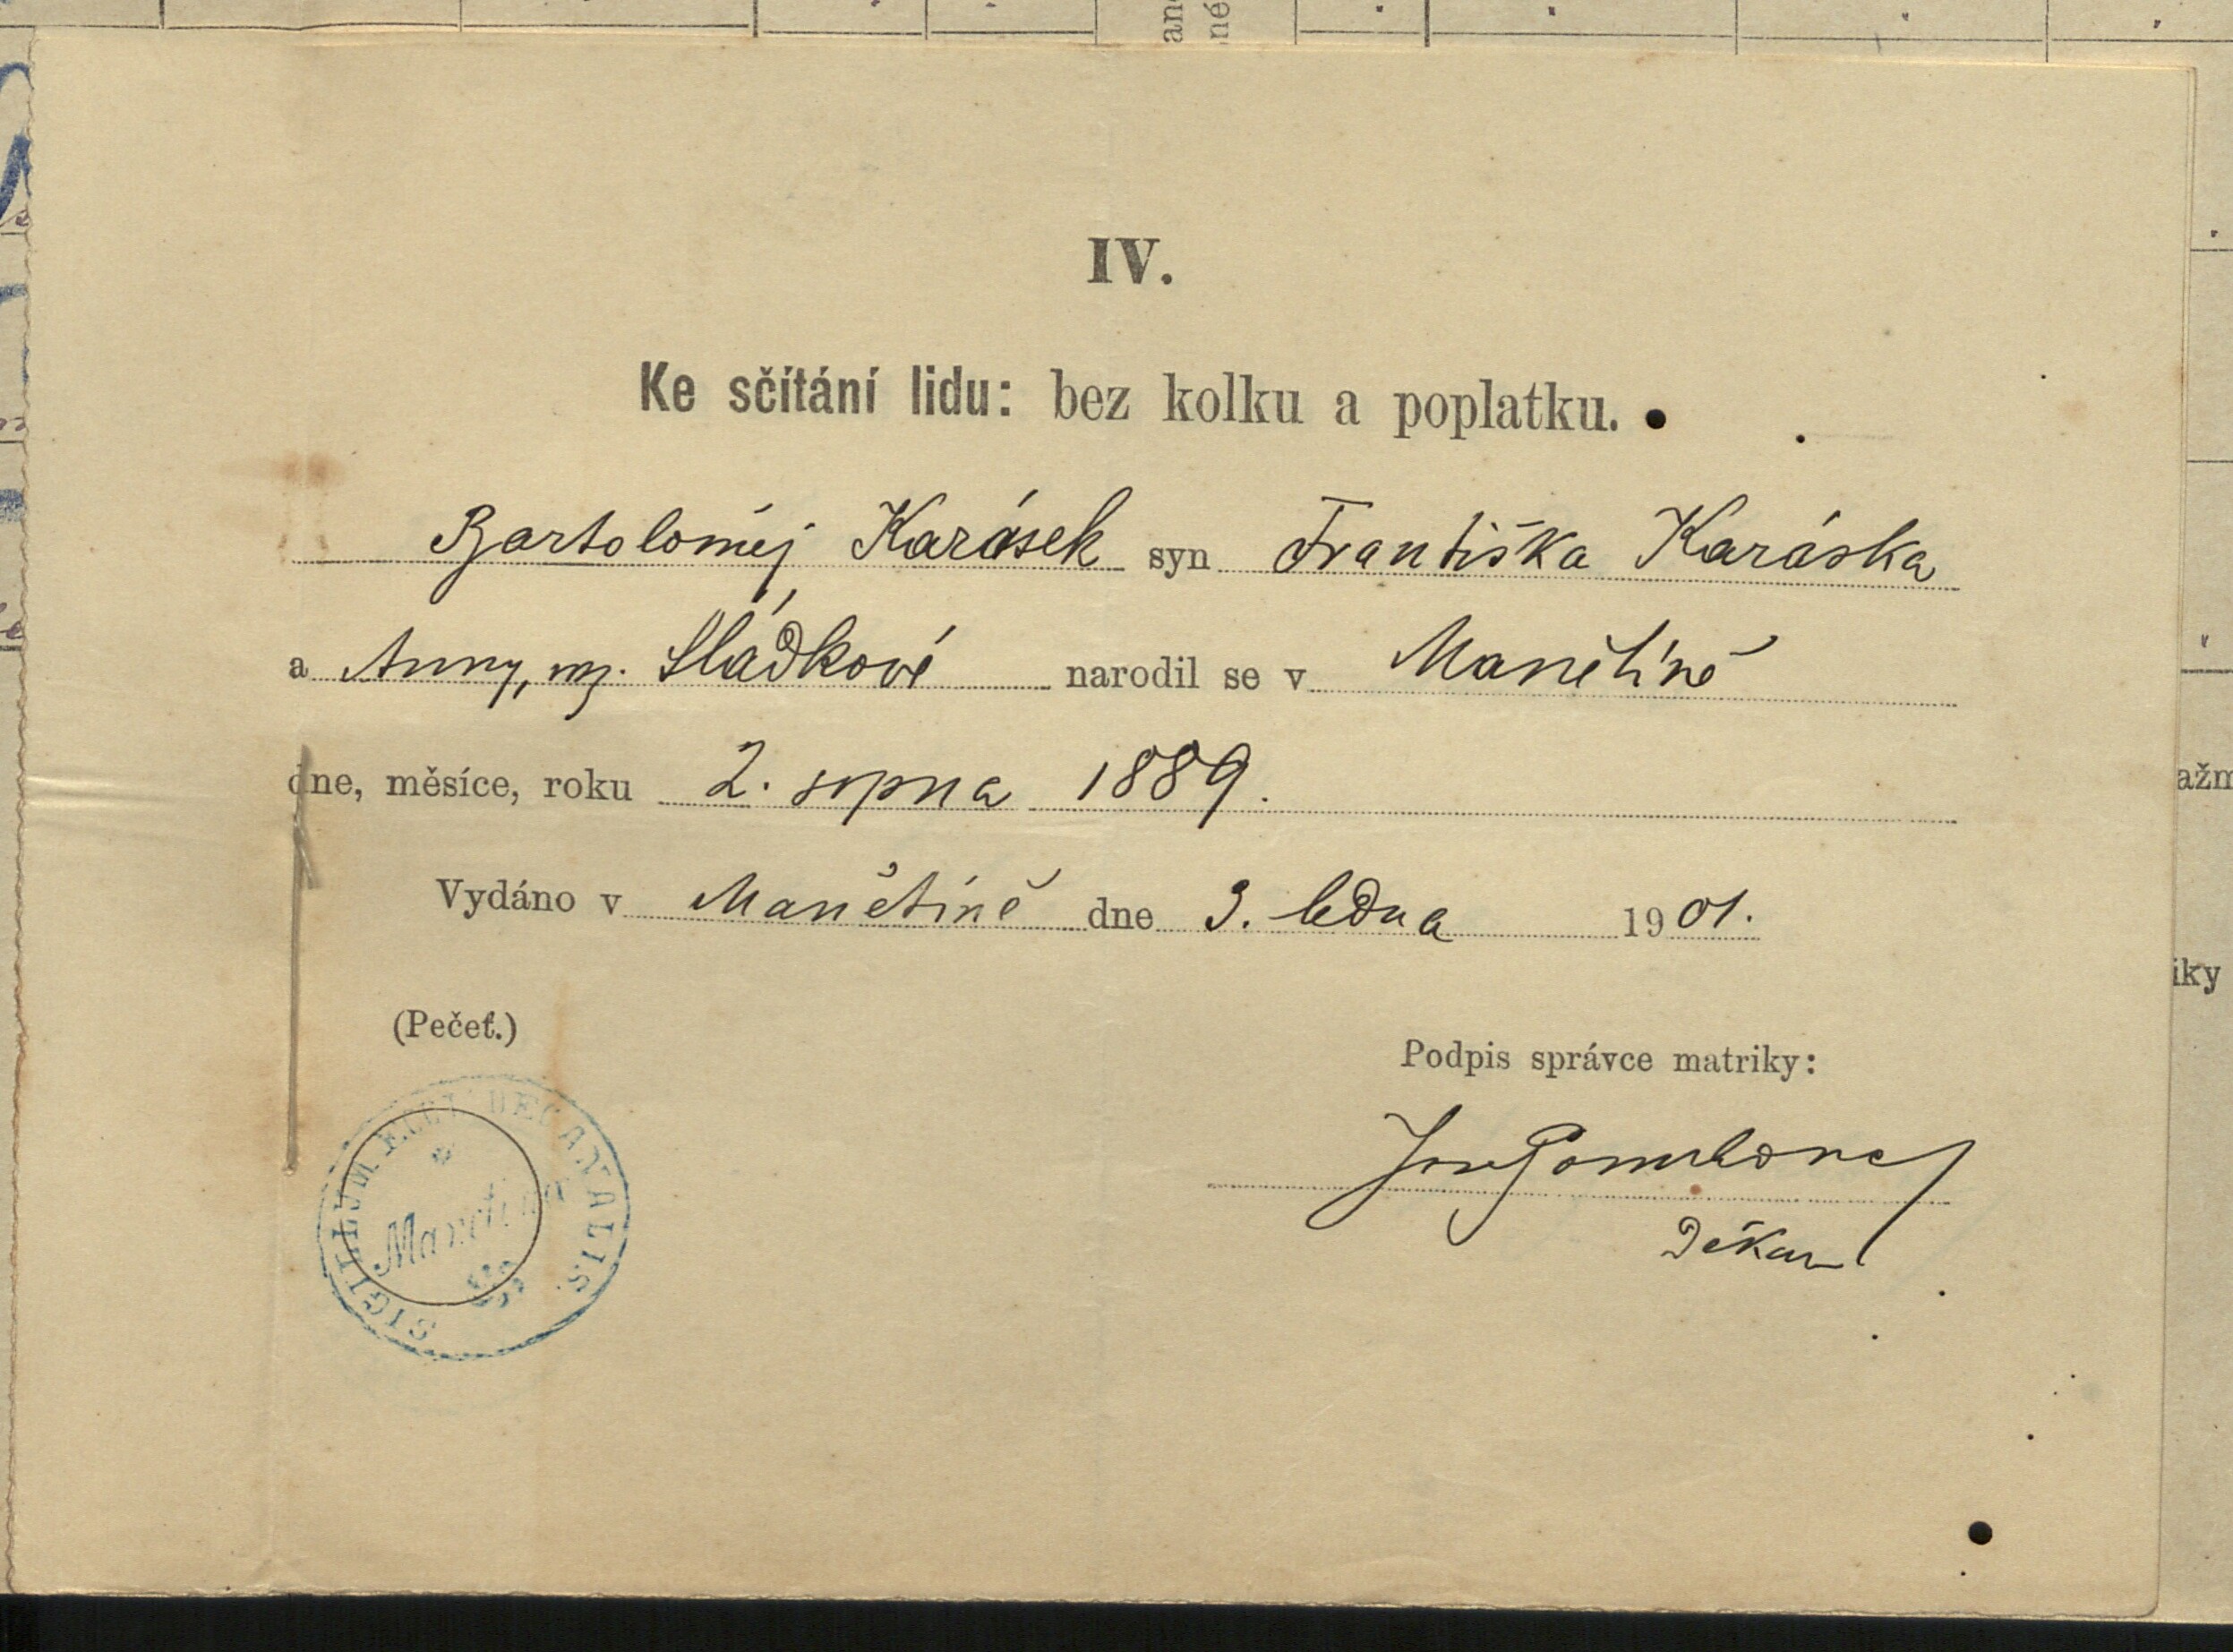 IV.
Ke sčítání lidu: bez kolku a poplatku.
Bartoloměj Karásek syn Františka Karáska
a Anny, roz. Sládkové narodil se v Manětíně
dne, měsíce, roku 2. srpna 1889.
Vydáno v Manětíně dne 3. ledna 1901.
(Pečeť.)
Podpis správce matriky:
Děkan
SIGILLUM ECCL. DECANALIS
Manětín
ažm
iky